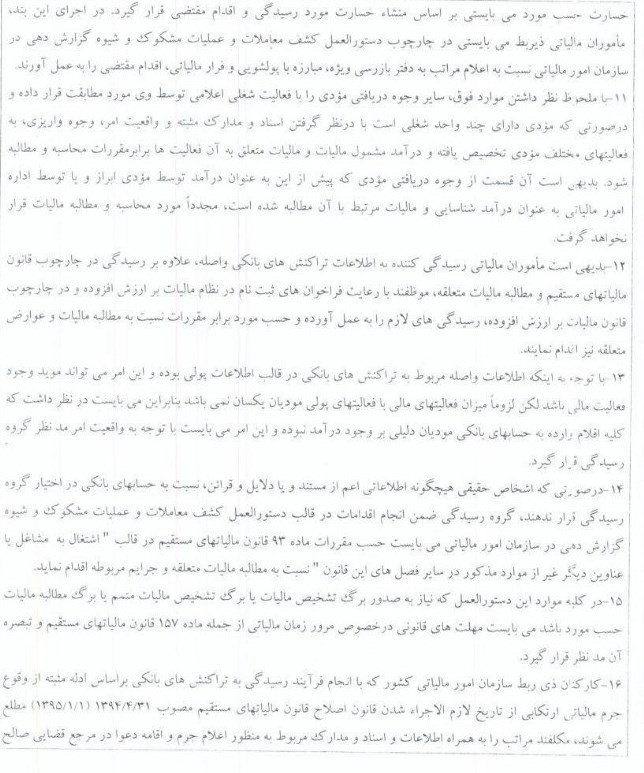 خسارت حسب مورد می بایستی بر اساس منشاء خسارت مورد رسیدگی و اقدام مقتضی قرار گیرد. در اجرای این بند،
مأموران مالیاتی ذیربط می بایستی در چارچوب دستورالعمل کشف معاملات و عملیات مشکوک و شیوه گزارش دهی در
سازمان امور مالیاتی نسبت به اعلام مراتب به دفتر بازرسی ویژه، مبارزه با پولشویی و فرار مالیاتی، اقدام مقتضی را به عمل آورند.
۱۱-با ملحوظ نظر داشتن موارد فوق، سایر وجوه دریافتی مؤدی را با فعالیت شغلی اعلامی توسط وی مورد مطابقت قرار داده و
درصورتی که مؤدی دارای چند واحد شغلی است با درنظر گرفتن اسناد و مدارک مثبته و واقعیت امر، وجوه واریزی، به
فعالیتهای مختلف مؤدی تخصیص یافته و درآمد مشمول مالیات و مالیات متعلق به آن فعالیت ها برابرمقررات محاسبه و مطالبه
شود. بدیهی است آن قسمت از وجوه دریافتی مؤدی که پیش از این به عنوان درآمد توسط مؤدی ابراز و یا توسط اداره
امور مالیاتی به عنوان درآمد شناسایی و مالیات مرتبط با آن مطالبه شده است، مجدداً مورد محاسبه و مطالبه مالیات قرار
نخواهد گرفت.
۱۲-بدیهی است مأموران مالیاتی رسیدگی کننده به اطلاعات تراکنش های بانکی واصله، علاوه بر رسیدگی در چارچوب قانون
مالیاتهای مستقیم و مطالبه مالیات متعلقه، موظفند با رعایت فراخوان های ثبت نام در نظام مالیات بر ارزش افزوده و در چارچوب
قانون مالیات بر ارزش افزوده، رسیدگی های لازم را به عمل آورده و حسب مورد برابر مقررات نسبت به مطالبه مالیات و عوارض
متعلقه نیز اقدام نمایند.
۱۳-با توجه به اینکه اطلاعات واصله مربوط به تراکنش های بانکی در قالب اطلاعات پولی بوده و این امر می تواند موید وجود
فعالیت مالی باشد لکن لزوماً میزان فعالیتهای مالی با فعالیتهای پولی مودیان یکسان نمی باشد بنابراین می بایست در نظر داشت که
کلیه اقلام وارده به حسابهای بانکی مودیان دلیلی بر وجود درآمد نبوده و این امر می بایست با توجه به واقعیت امر مد نظر گروه
رسیدگی قرار گیرد.
۱۴-درصورتی که اشخاص حقیقی هیچگونه اطلاعاتی اعم از مستند و یا دلایل و قرائن، نسبت به حسابهای بانکی در اختیار گروه
رسیدگی قرار ندهند، گروه رسیدگی ضمن انجام اقدامات در قالب دستورالعمل کشف معاملات و عملیات مشکوک و شیوه
گزارش دهی در سازمان امور مالیاتی می بایست حسب مقررات ماده ۹۳ قانون مالیاتهای مستقیم در قالب " اشتغال به مشاغل یا
عناوین دیگر غیر از موارد مذکور در سایر فصل های این قانون " نسبت به مطالبه مالیات متعلقه و جرایم مربوطه اقدام نماید.
۱۵-در کلیه موارد این دستورالعمل که نیاز به صدور برگ تشخیص مالیات یا برگ تشخیص مالیات متمم یا برگ مطالبه مالیات
حسب مورد باشد می بایست مهلت های قانونی درخصوص مرور زمان مالیاتی از جمله ماده ۱۵۷ قانون مالیاتهای مستقیم و تبصره
آن مد نظر قرار گیرد.
۱۶-کارکنان ذی ربط سازمان امور مالیاتی کشور که با انجام فرآیند رسیدگی به تراکنش های بانکی براساس ادله مثبته از وقوع
جرم مالیاتی ارتکابی از تاریخ لازم الاجراء شدن قانون اصلاح قانون مالیاتهای مستقیم مصوب ۱۳۹۴/۴/۳۱ (۱۳۹۵/۱/۱) مطلع
می شوند، مکلفند مراتب را به همراه اطلاعات و اسناد و مدارک مربوط به منظور اعلام جرم و اقامه دعوا در مرجع قضایی صالح